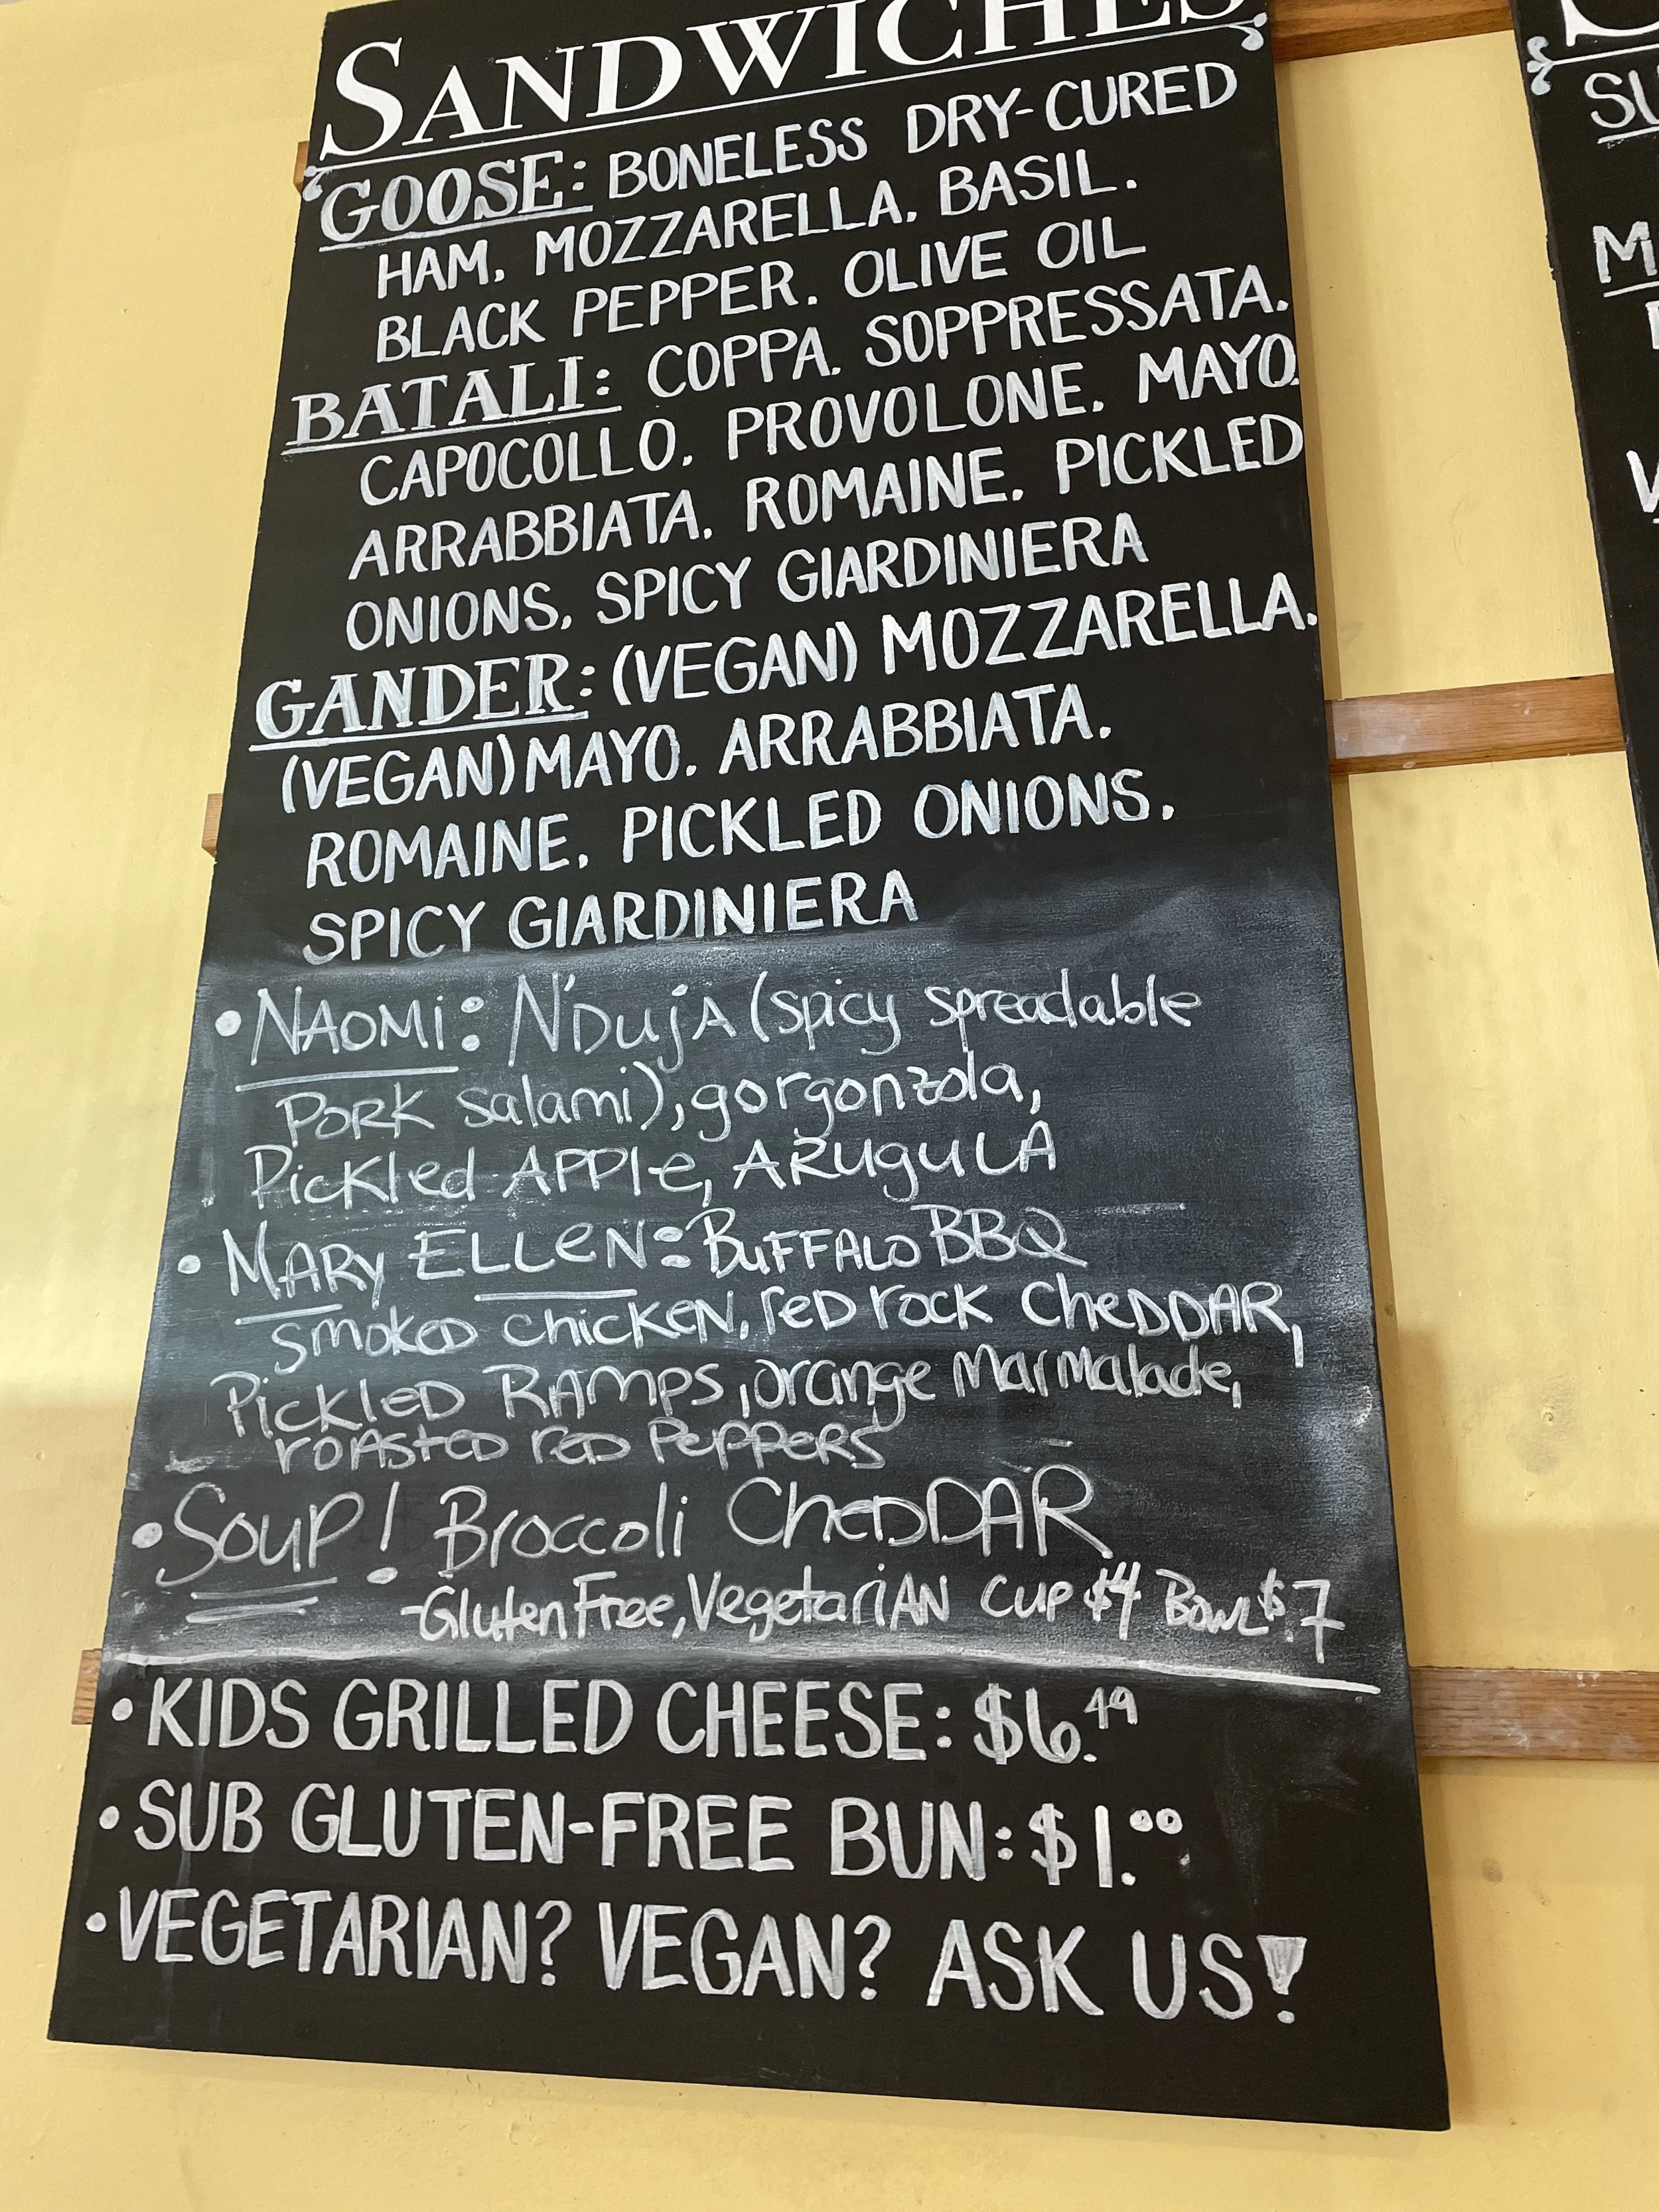 SANDWICHES
GOOSE: BONELESS DRY-CURED
HAM, MOZZARELLA, BASIL,
BLACK PEPPER, OLIVE OIL
BATALI: COPPA, SOPPRESSATA,
CAPOCOLLO, PROVOLONE, MAYO,
ARRABBIATA, ROMAINE, PICKLED
ONIONS, SPICY GIARDINIERA
GANDER: (VEGAN) MOZZARELLA,
(VEGAN) MAYO, ARRABBIATA,
ROMAINE, PICKLED ONIONS,
SPICY GIARDINIERA
• NAOMi: N'DujA (spicy spreadable
PORK salami), gorgonzola,
Pickled APPle, ARuguLA
• MARy ELLeN: BuFFALO BBQ
smoked chicKeN, red rock CheDDAR,
PickLeD RAmps, orange MarMalade,
roasted red PePPeRS
• Soup! Broccoli CheDDAR
-Gluten Free, VegetariAN Cup $4 Bowl $7
• KIDS GRILLED CHEESE: $6.49
• SUB GLUTEN-FREE BUN: $1.00
• VEGETARIAN? VEGAN? ASK US!
SU
M